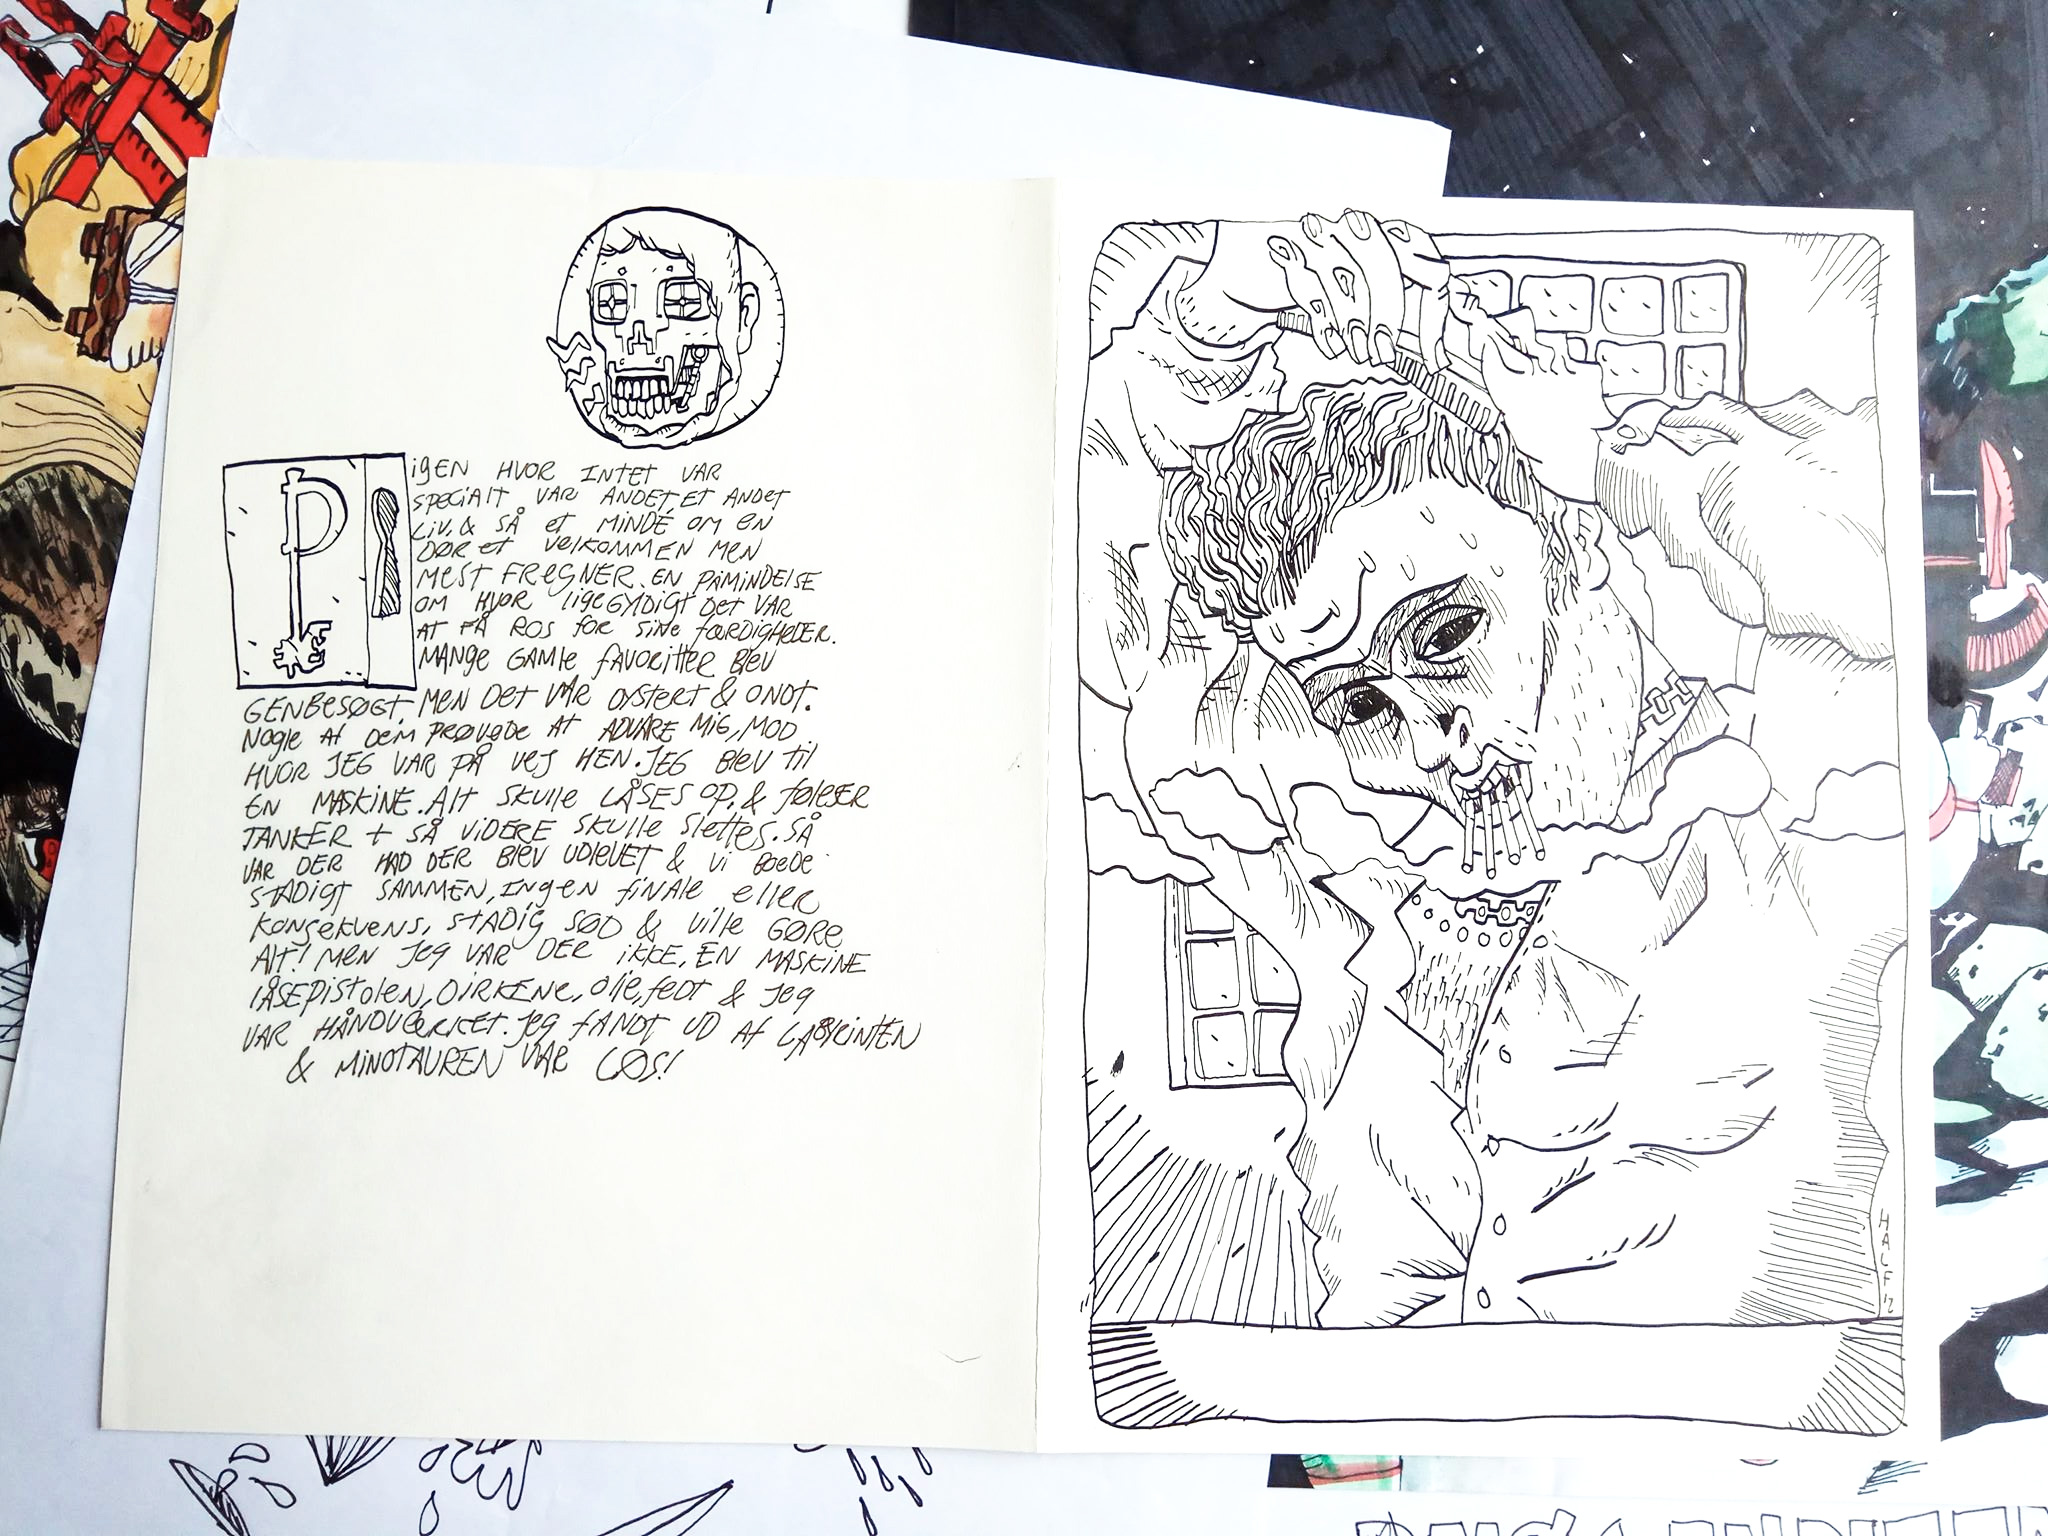 PIGEN HVOR INTET VAR
SPECIALT VAR ANDET, ET ANDET
LIV. & SÅ ET MINDE OM EN
DØR ET VELKOMMEN MEN
MEST FREGNER. EN PÅMINDELSE
OM HVOR LIGEGYDIGT DET VAR
AT FÅ ROS FOR SINE FÆRDIGHEDER.
MANGE GAMLE FAVORITTER BLEV
GENBESØGT, MEN DET VAR DYSTERT & ONDT.
NOGLE AF DEM PRØVEDE AT ADVARE MIG, MOD
HVOR JEG VAR PÅ VEJ HEN. JEG BLEV TIL
EN MASKINE. ALT SKULLE LÅSES OP, & FØLELSER
TANKER + SÅ VIDERE SKULLE SLETTES. SÅ
VAR DER HAD DER BLEV UDLEVET & VI BOEDE
STADIGT SAMMEN, INGEN FINALE ELLER
KONSEKVENS, STADIG SØD & VILLE GØRE
ALT! MEN JEG VAR DER IKKE, EN MASKINE
LÅSEPISTOLEN, DIRKENE, OLIE, FEDT & JEG
VAR HÅNDVÆRKET. JEG FANDT UD AF LABYRINTEN
& MINOTAUREN VAR LØS!
HALF12